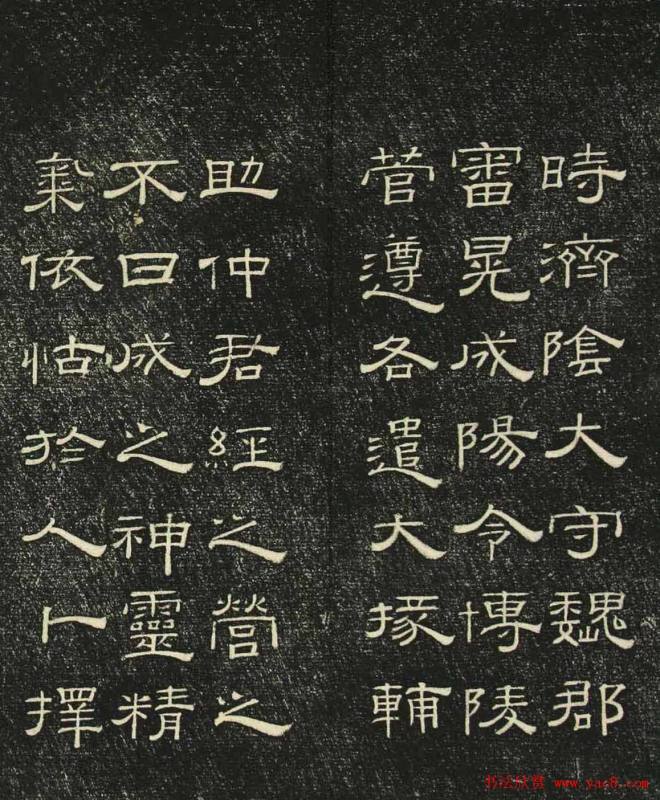 時濟陰大守魏郡
審晃成陽令博陵
菅遵各遣大掾輔
助仲君經之營之
不日成之神靈精
氣依怙於人卜擇
书法欣赏 www.yac8.com